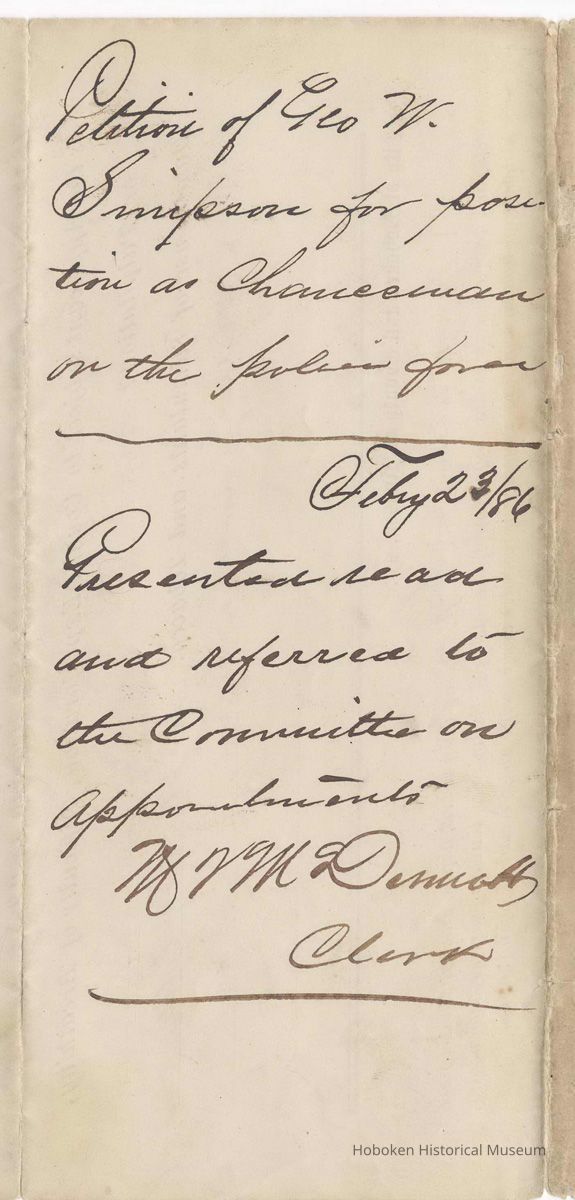 Petition of Geo W.
Simpson for posi-
tion as Chanceman
on the police force
Febry 23/86
Presented read
and referred to
the Committee on
Appointments
M V McDermott
Clerk
Hoboken Historical Museum